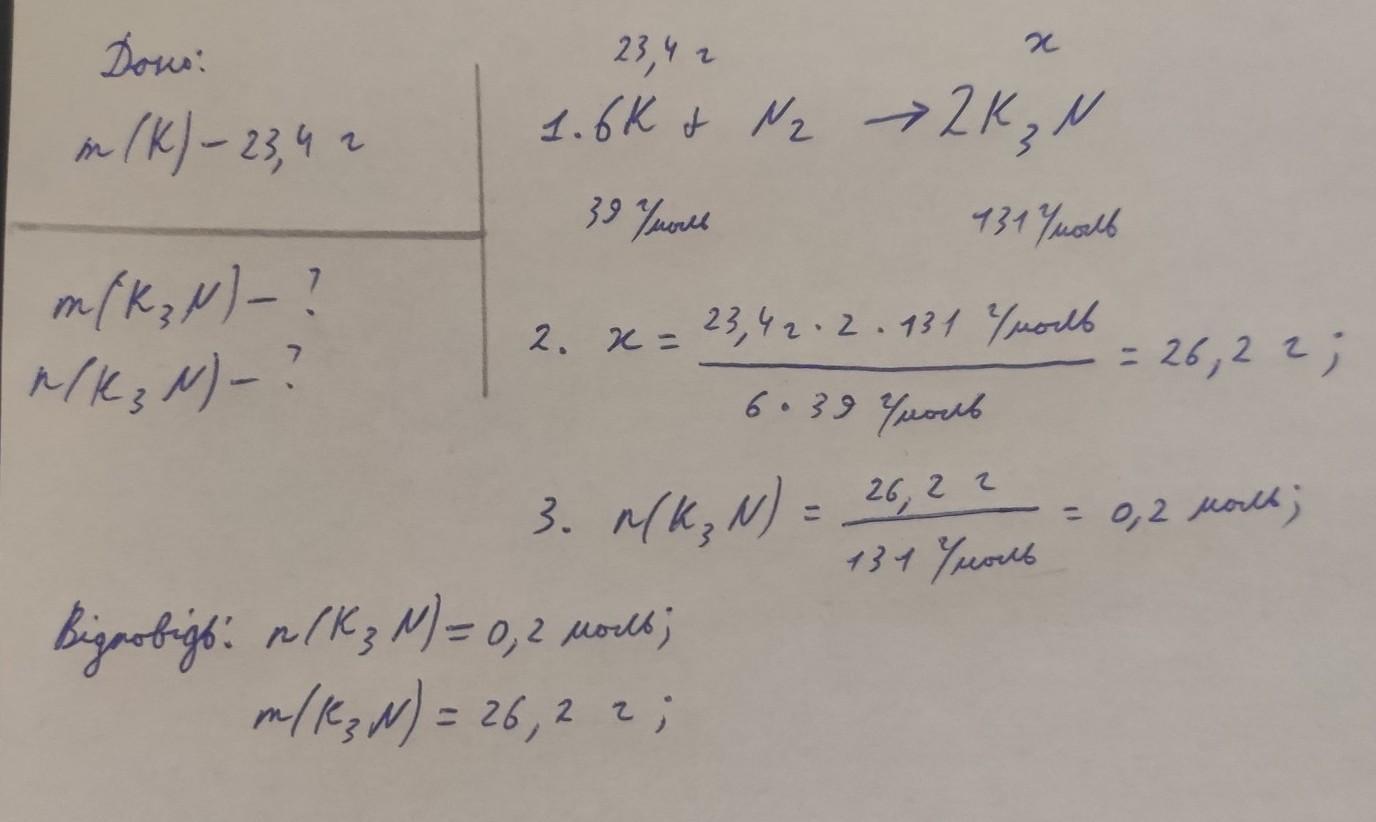 Дано:
m(K) – 23,4 г
m(K₃N) – ?
n(K₃N) – ?
23,4 г x
1. 6K + N₂ → 2K₃N
39 г/моль 131 г/моль
2. x = (23,4 г · 2 · 131 г/моль) / (6 · 39 г/моль) = 26,2 г ;
3. n(K₃N) = 26,2 г / 131 г/моль = 0,2 моль;
Відповідь: n(K₃N) = 0,2 моль;
m(K₃N) = 26,2 г ;